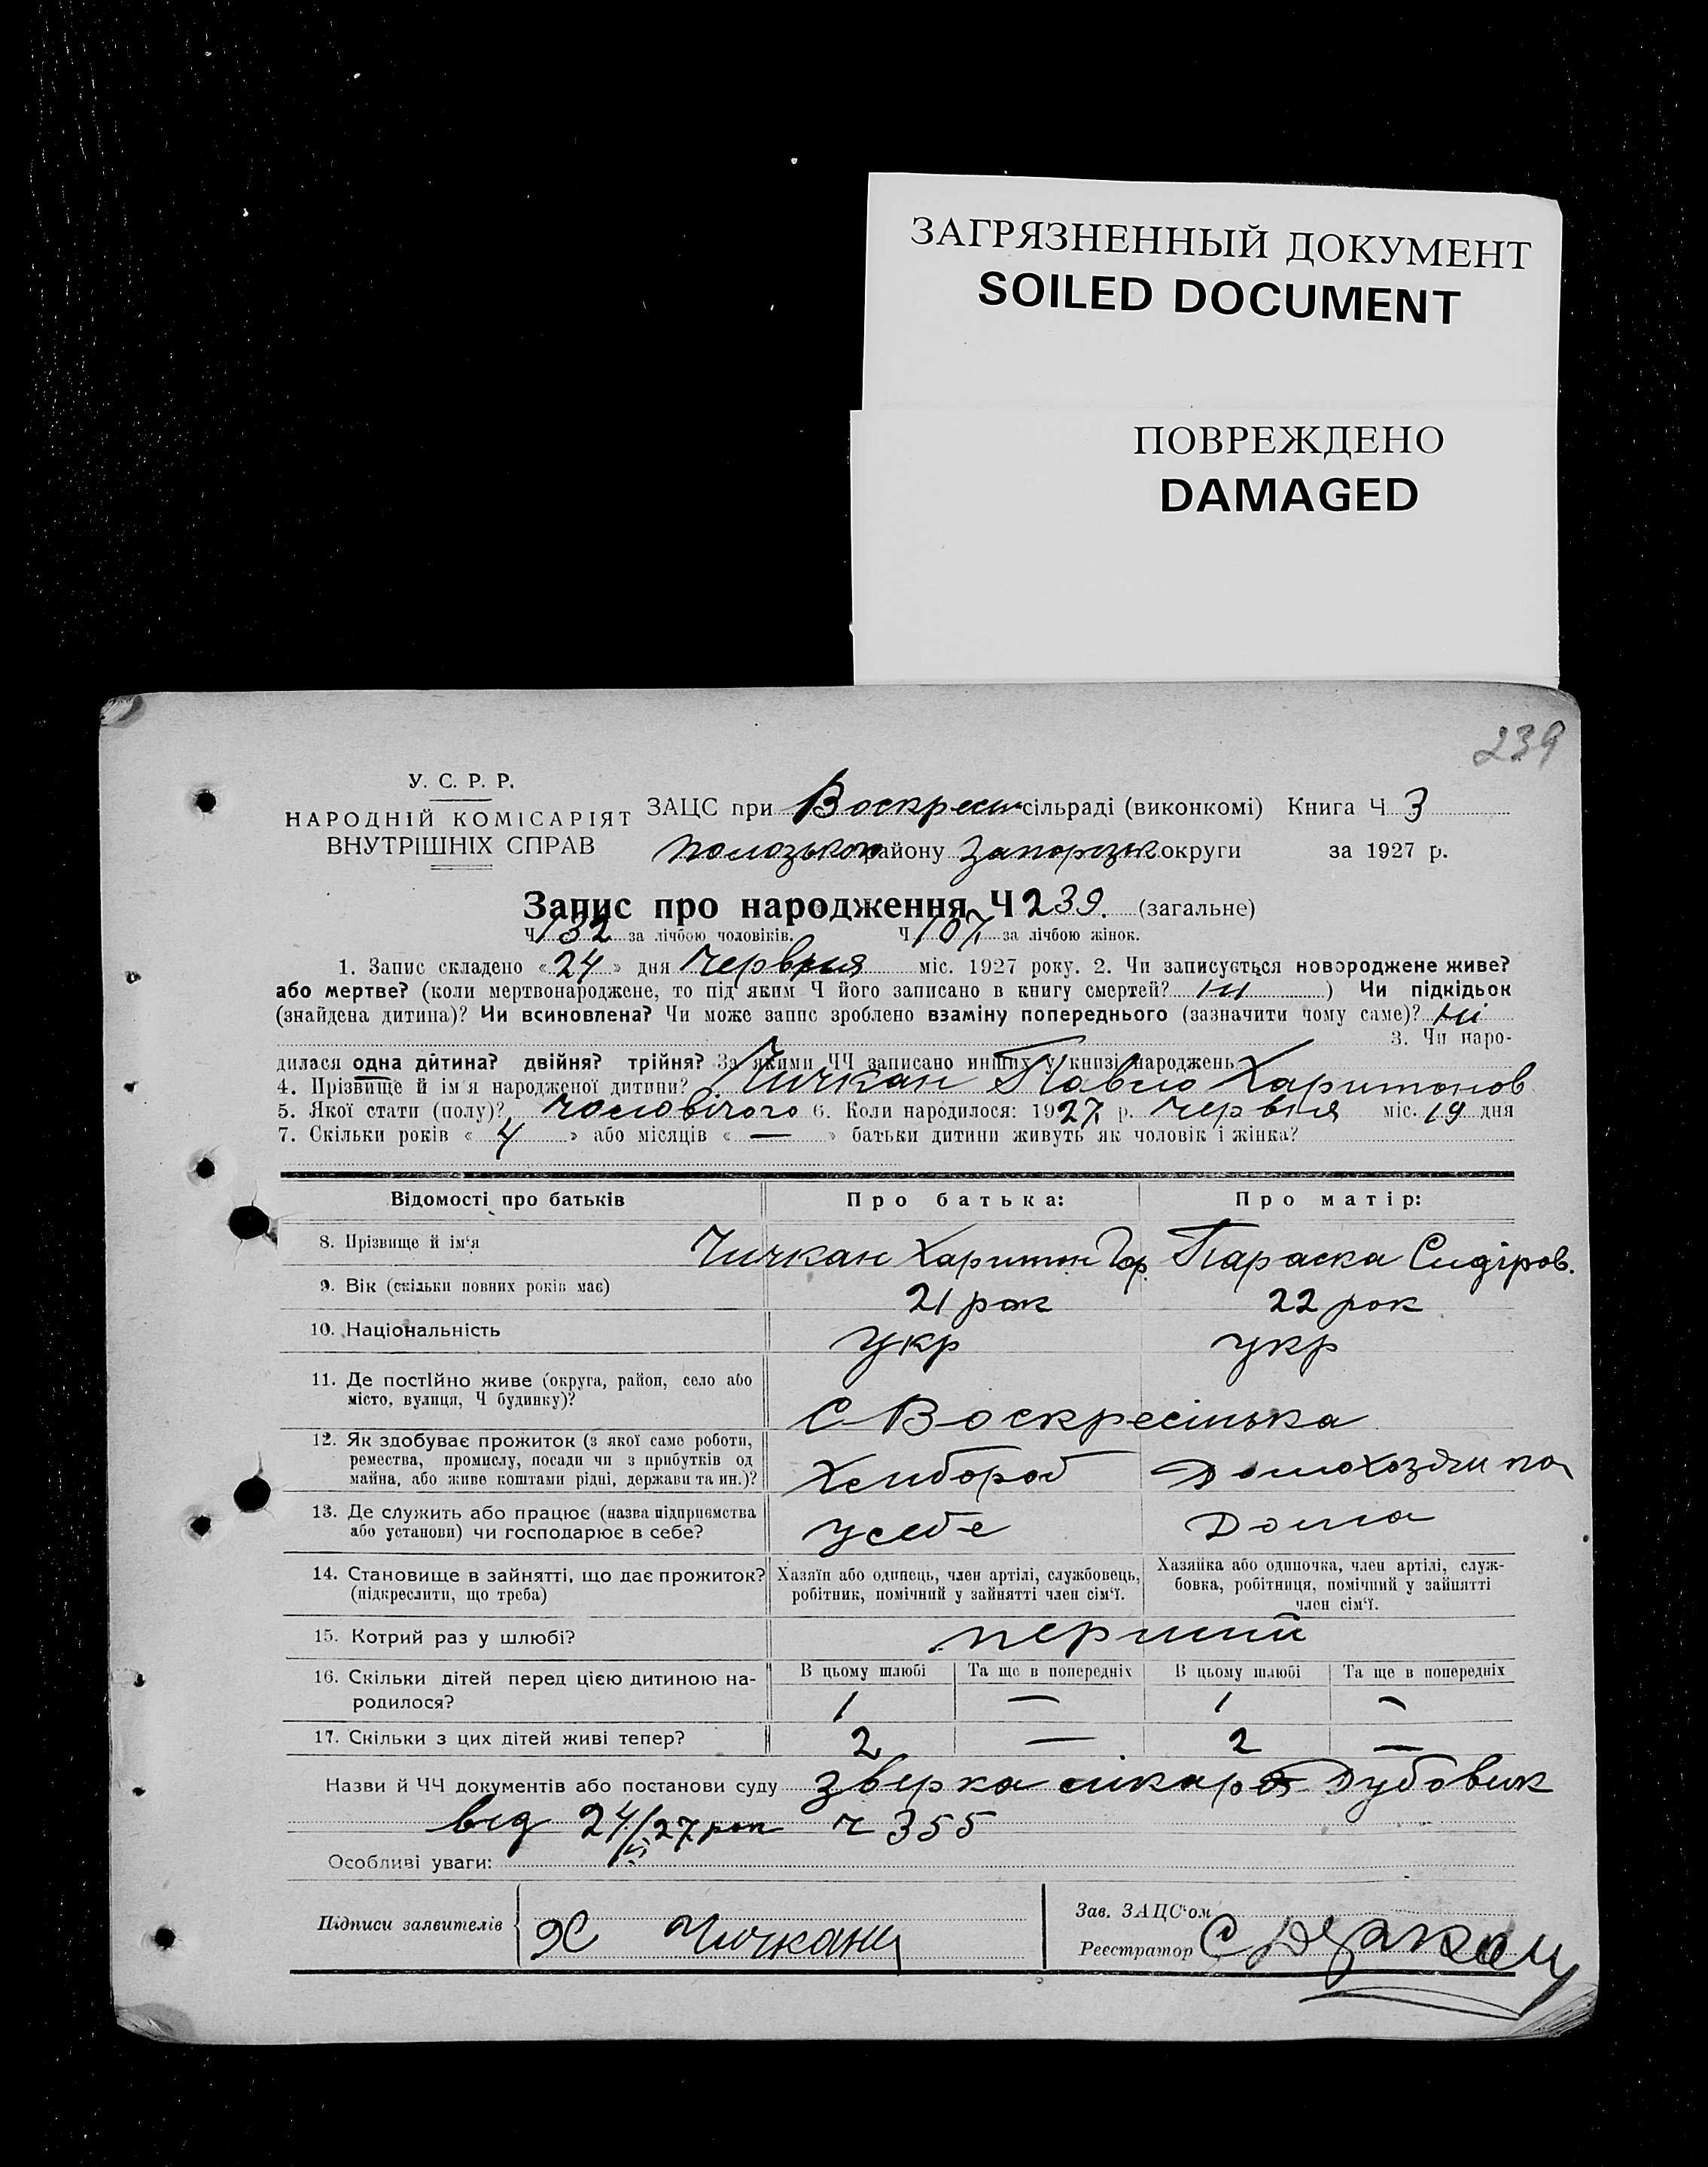 ЗАГРЯЗНЕННЫЙ ДОКУМЕНТ
SOILED DOCUMENT
ПОВРЕЖДЕНО
DAMAGED
239
У. С. Р. Р.
НАРОДНІЙ КОМІСАРІЯТ
ВНУТРІШНІХ СПРАВ
ЗАЦС при Воскресен сільраді (виконкомі) Книга Ч 3
Полозького району Запорізьк округи за 1927 р.
Запис про народження Ч 239. (загальне)
Ч 132 за лічбою чоловіків. Ч 107 за лічбою жінок.
1. Запис складено «24» дня Червня міс. 1927 року. 2. Чи записується новороджене живе?
або мертве? (коли мертвонароджене, то під яким Ч його записано в книгу смертей? ) Чи підкідьок
(знайдена дитина)? Чи всиновлена? Чи може запис зроблено взаміну попереднього (зазначити чому саме)? Ні
3. Чи наро-
дилася одна дитина? двійня? трійня? За якими ЧЧ записано инших у книзі народжень
4. Прізвище й ім'я народженої дитини? Чичкан Павло Харитонов
5. Якої стати (полу)? чоловічого 6. Коли народилося: 1927 р. червня міс. 19 дня
7. Скільки років «4» або місяців «—» батьки дитини живуть як чоловік і жінка?
Відомості про батьків Про батька: Про матір:
8. Прізвище й ім'я Чичкан Харитон Гр. Параска Сидіров.
9. Вік (скільки повних років має) 21 рок 22 рок
10. Національність Укр укр
11. Де постійно живе (округа, район, село або
місто, вулиця, Ч будинку)?
С Воскресінька
12. Як здобуває прожиток (з якої саме роботи,
ремества, промислу, посади чи з прибутків од
майна, або живе коштами рідні, держави та ин.)?
Хлибороб Домохозяика
13. Де служить або працює (назва підприємства
або установи) чи господарює в себе?
Усебе Дома
14. Становище в зайнятті, що дає прожиток?
(підкреслити, що треба)
Хазяїн або одинець, член артілі, службовець,
робітник, помічний у зайнятті член сім'ї.
Хазяйка або одиночка, член артілі, служ-
бовка, робітниця, помічний у зайнятті
член сім'ї.
15. Котрий раз у шлюбі? перший
16. Скільки дітей перед цією дитиною на-
родилося?
В цьому шлюбі Та ще в попередніх В цьому шлюбі Та ще в попередніх
1 — 1 —
17. Скільки з цих дітей живі тепер? 2 — 2 —
Назви й ЧЧ документів або постанови суду Дубовик
від 24/VI 27 рок ч 355
Особливі уваги:
Підписи заявителів Х Чичкан
Зав. ЗАЦС'ом
Реєстратор С